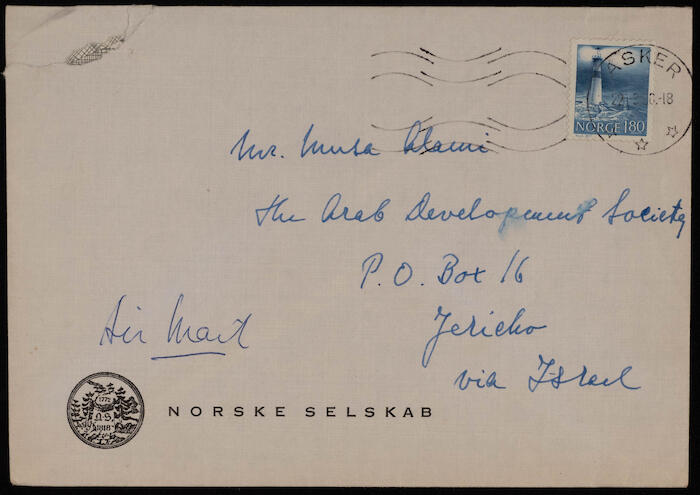 ASKER
-18
NORGE 180
Mr. Musa Alami
The Arab Development Society
P.O. Box 16
Jericho
via Israel
Air Mail
1772
N.S.
1818
NORSKE SELSKAB